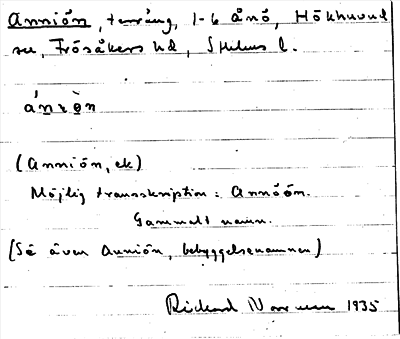 Anniön, terräng, 1-6 Ånö, Hökhuvud
sn, Frösåkers hd, Sthlms l.
(Anniön, ek)
Möjlig transskription: Annöön.
Gammalt namn.
(Se även Anniön, bebyggelsenamnen)
Rickard 1935